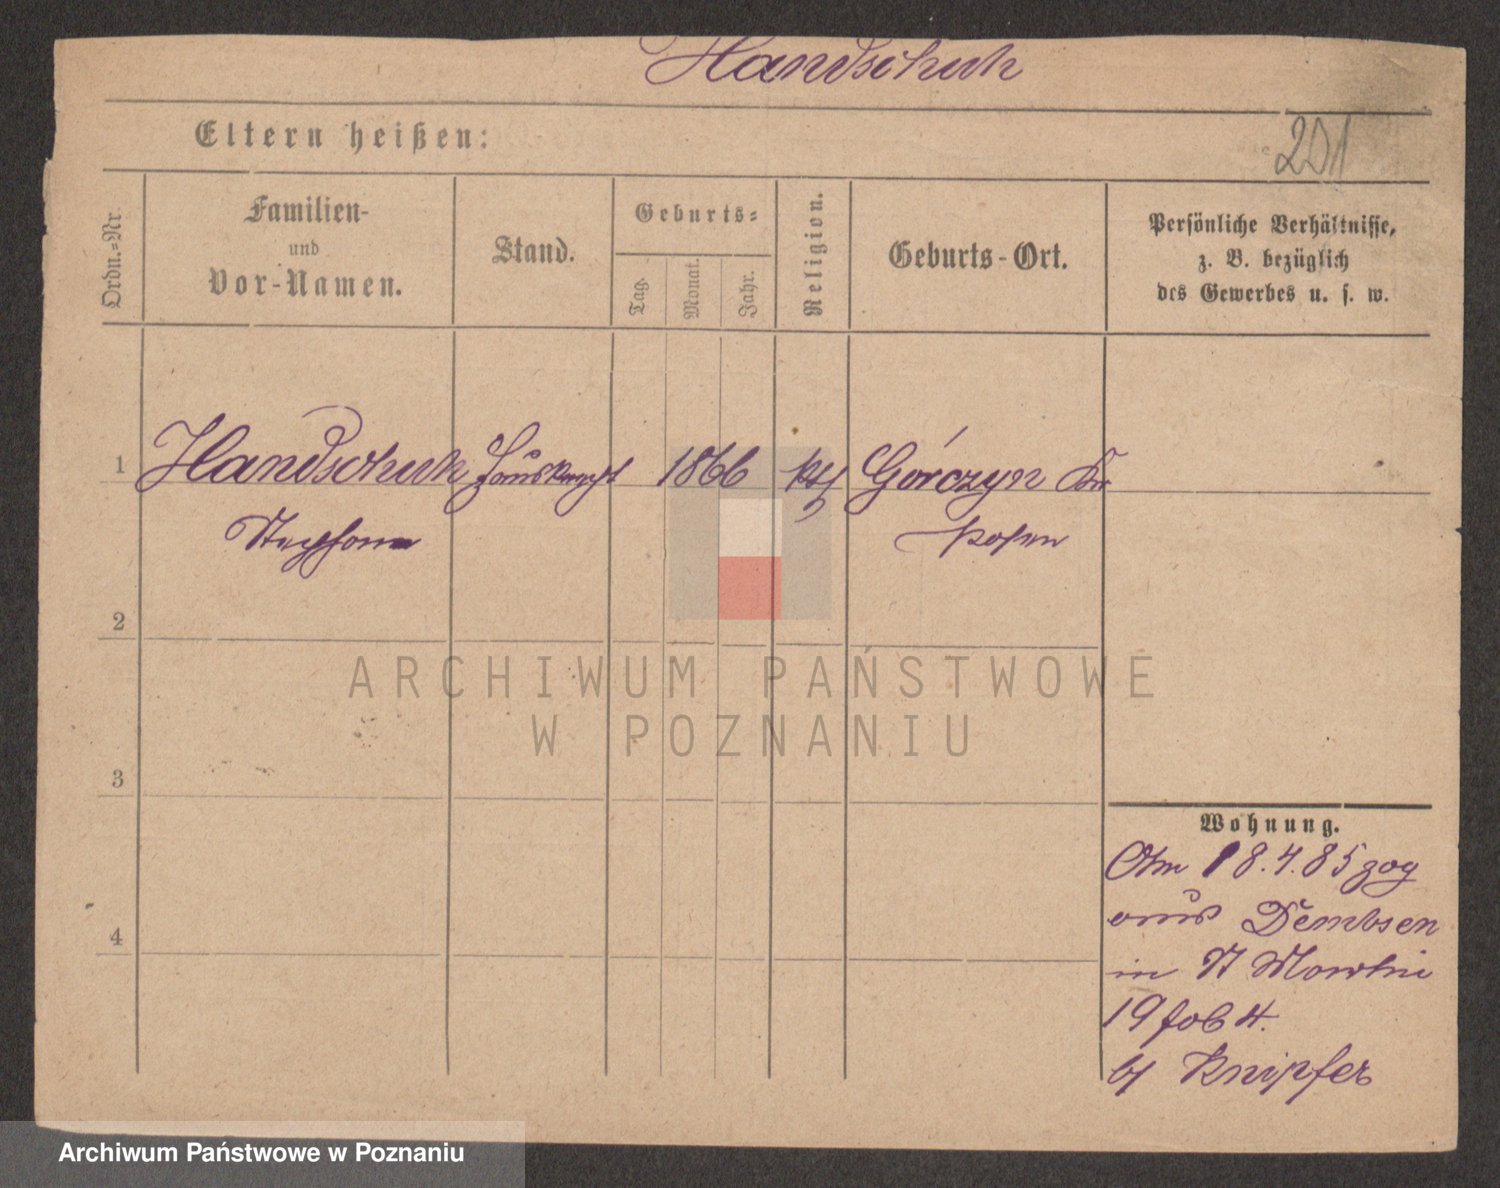 Handschuh
Eltern heißen:
201
Ordn.=Nr.
Familien-
und
Vor-Namen.
Stand.
Geburts=
Tag.
Monat.
Jahr.
Religion.
Geburts-Ort.
Persönliche Verhältnisse,
z. B. bezüglich
des Gewerbes u. s. w.
1 Handschuh Hausknecht 1866 kth Górczyn Kr
Stephan Posen
2
ARCHIWUM PAŃSTWOWE
W POZNANIU
3
Wohnung.
Am 18.4.85 zog
aus Dembsen
in St Martin
4
19
b/ Knipfer
Archiwum Państwowe w Poznaniu